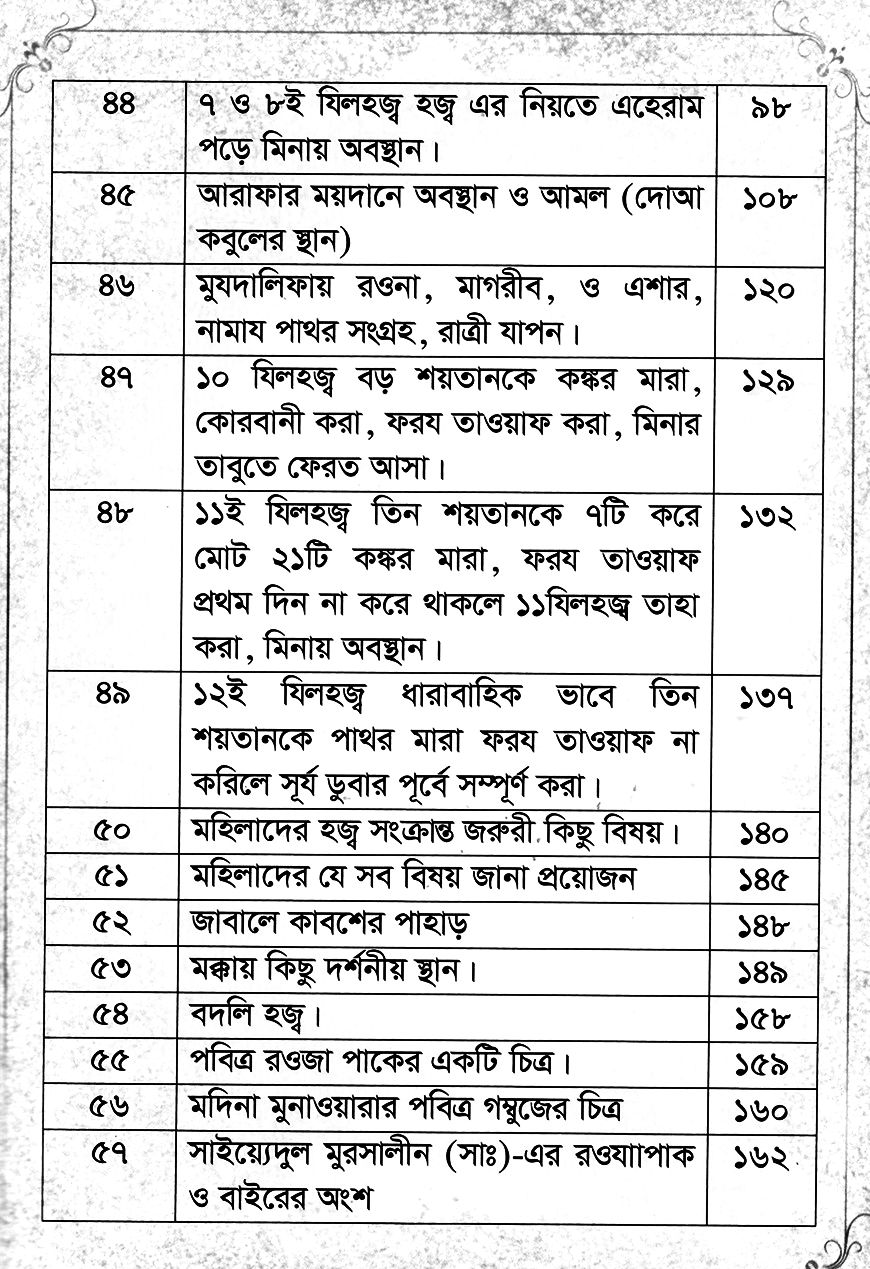 ৪৪ ৭ ও ৮ই যিলহজ্ব হজ্ব এর নিয়তে এহেরাম ৯৮
পড়ে মিনায় অবস্থান।
৪৫ আরাফার ময়দানে অবস্থান ও আমল (দোআ ১০৮
কবুলের স্থান)
৪৬ মুযদালিফায় রওনা, মাগরীব, ও এশার, ১২০
নামায পাথর সংগ্রহ, রাত্রী যাপন।
৪৭ ১০ যিলহজ্ব বড় শয়তানকে কঙ্কর মারা, ১২৯
কোরবানী করা, ফরয তাওয়াফ করা, মিনার
তাবুতে ফেরত আসা।
৪৮ ১১ই যিলহজ্ব তিন শয়তানকে ৭টি করে ১৩২
মোট ২১টি কঙ্কর মারা, ফরয তাওয়াফ
প্রথম দিন না করে থাকলে ১১যিলহজ্ব তাহা
করা, মিনায় অবস্থান।
৪৯ ১২ই যিলহজ্ব ধারাবাহিক ভাবে তিন ১৩৭
শয়তানকে পাথর মারা ফরয তাওয়াফ না
করিলে সূর্য ডুবার পূর্বে সম্পূর্ণ করা।
৫০ মহিলাদের হজ্ব সংক্রান্ত জরুরী কিছু বিষয়। ১৪০
৫১ মহিলাদের যে সব বিষয় জানা প্রয়োজন ১৪৫
৫২ জাবালে কাবশের পাহাড় ১৪৮
৫৩ মক্কায় কিছু দর্শনীয় স্থান। ১৪৯
৫৪ বদলি হজ্ব। ১৫৮
৫৫ পবিত্র রওজা পাকের একটি চিত্র। ১৫৯
৫৬ মদিনা মুনাওয়ারার পবিত্র গম্বুজের চিত্র ১৬০
৫৭ সাইয়্যেদুল মুরসালীন (সাঃ)-এর রওযাাপাক ১৬২
ও বাইরের অংশ